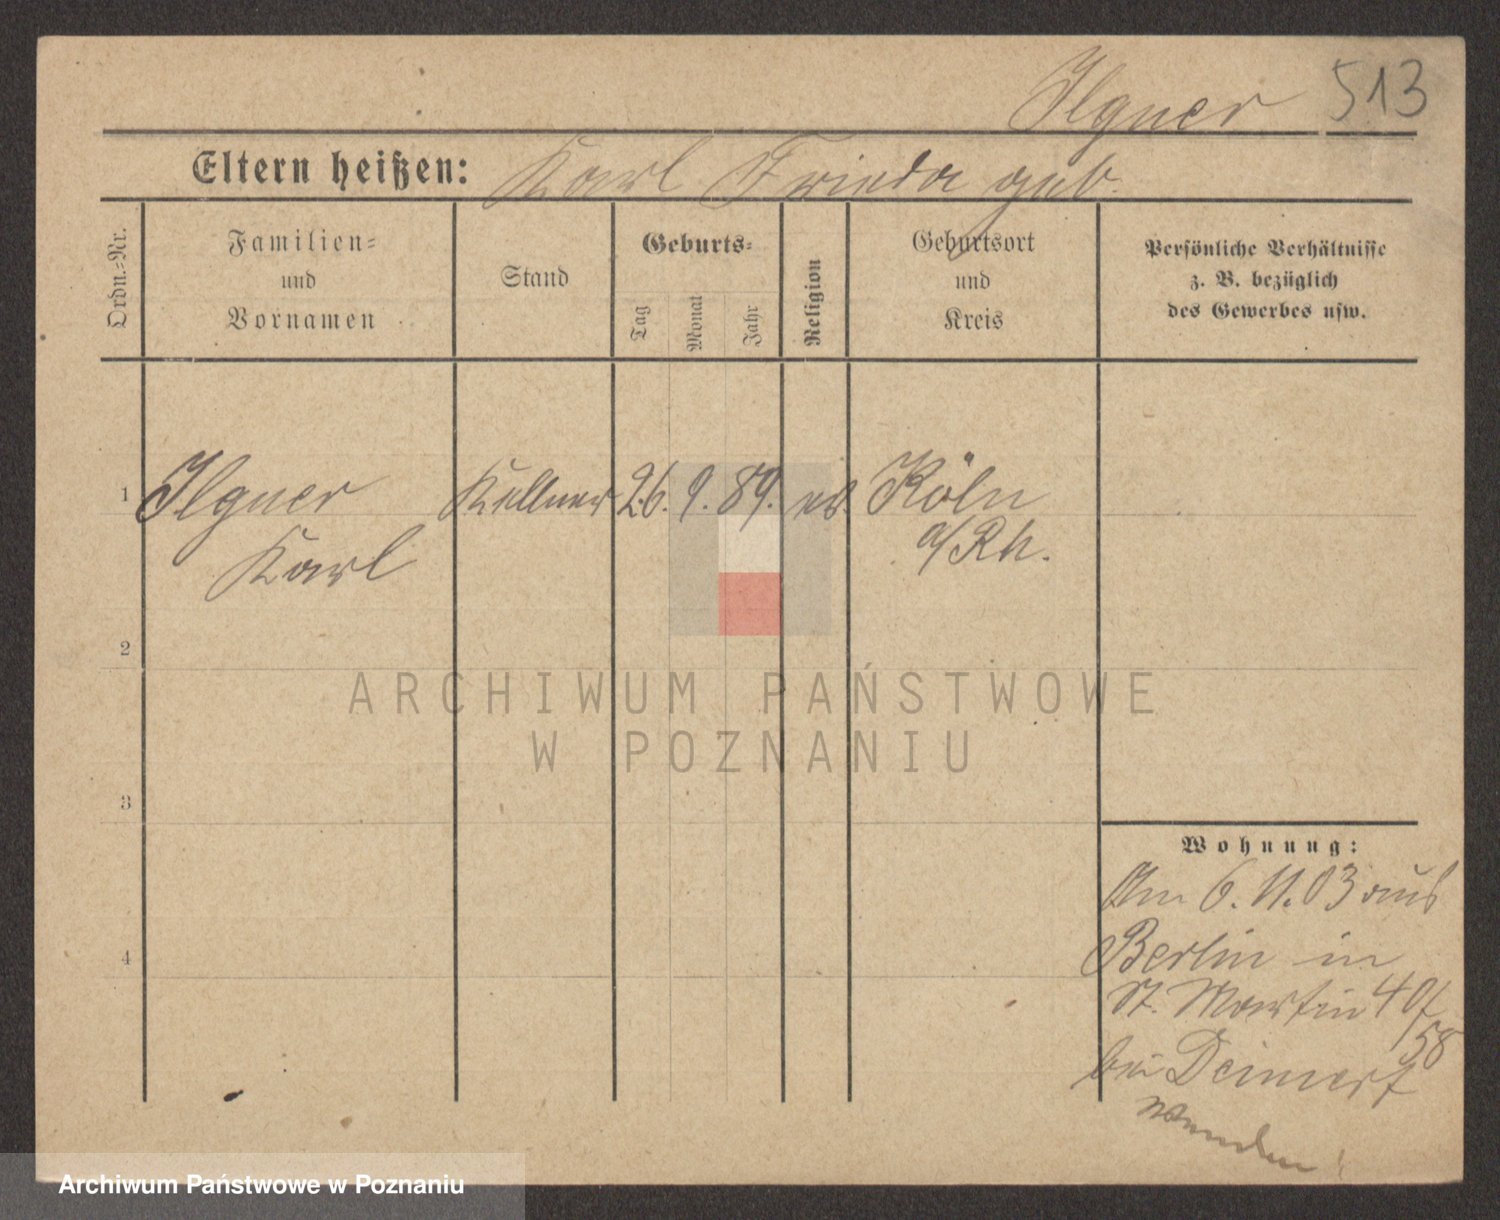 Ilgner 513
Eltern heißen: Karl Frieda geb.
Ordn.=Nr.
Familien=
und
Vornamen
Stand
Geburts=
Tag
Monat
Jahr
Religion
Geburtsort
und
Kreis
Persönliche Verhältnisse
z. B. bezüglich
des Gewerbes usw.
1 Ilgner Kellner 26. 9. 89. ev. Köln
Karl a/Rh.
2
3
4
Wohnung:
Am 6. 11. 03 aus
Berlin in
St. Martin 40/
58
bei
wenden!
ARCHIWUM PAŃSTWOWE
W POZNANIU
Archiwum Państwowe w Poznaniu